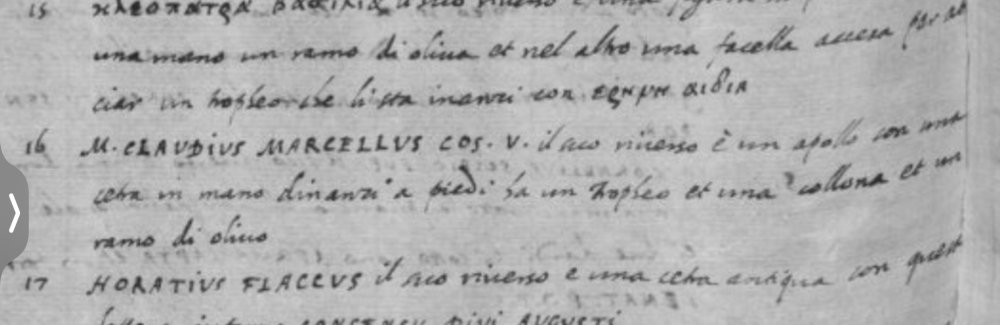 15 ΚΛΕΟΠΑΤΡΑ ΒΑCΙΛΙΑ il suo riuerso è una
una mano un ramo di oliua et nel altro una facella accesa per ab
ciar un tropheo che li sta inanzi con ΕΡΗΜΗ ΑΙΔΙΑ
16 M. CLAVDIVS MARCELLVS COS. V. il suo riuerso è un apollo con una
cetra in mano dinanzi a piedi ha un tropheo et una collona et un
ramo di oliuo
17 HORATIVS FLACCVS il suo riuerso è una cetra antiqua con quest
DIVI AVGVSTI